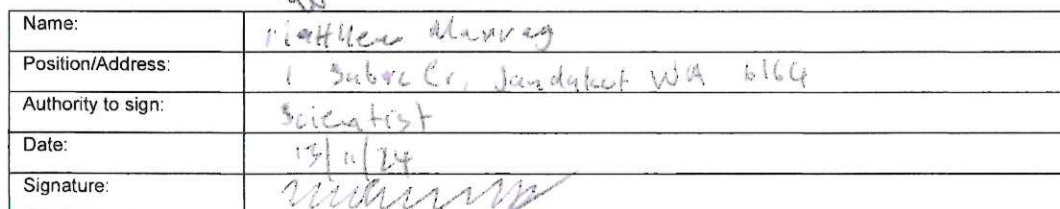 Name: Matthew Murray
Position/Address: 1 Sabre Cr, Jandakot WA 6164
Authority to sign: Scientist
Date: 13/11/24
Signature: